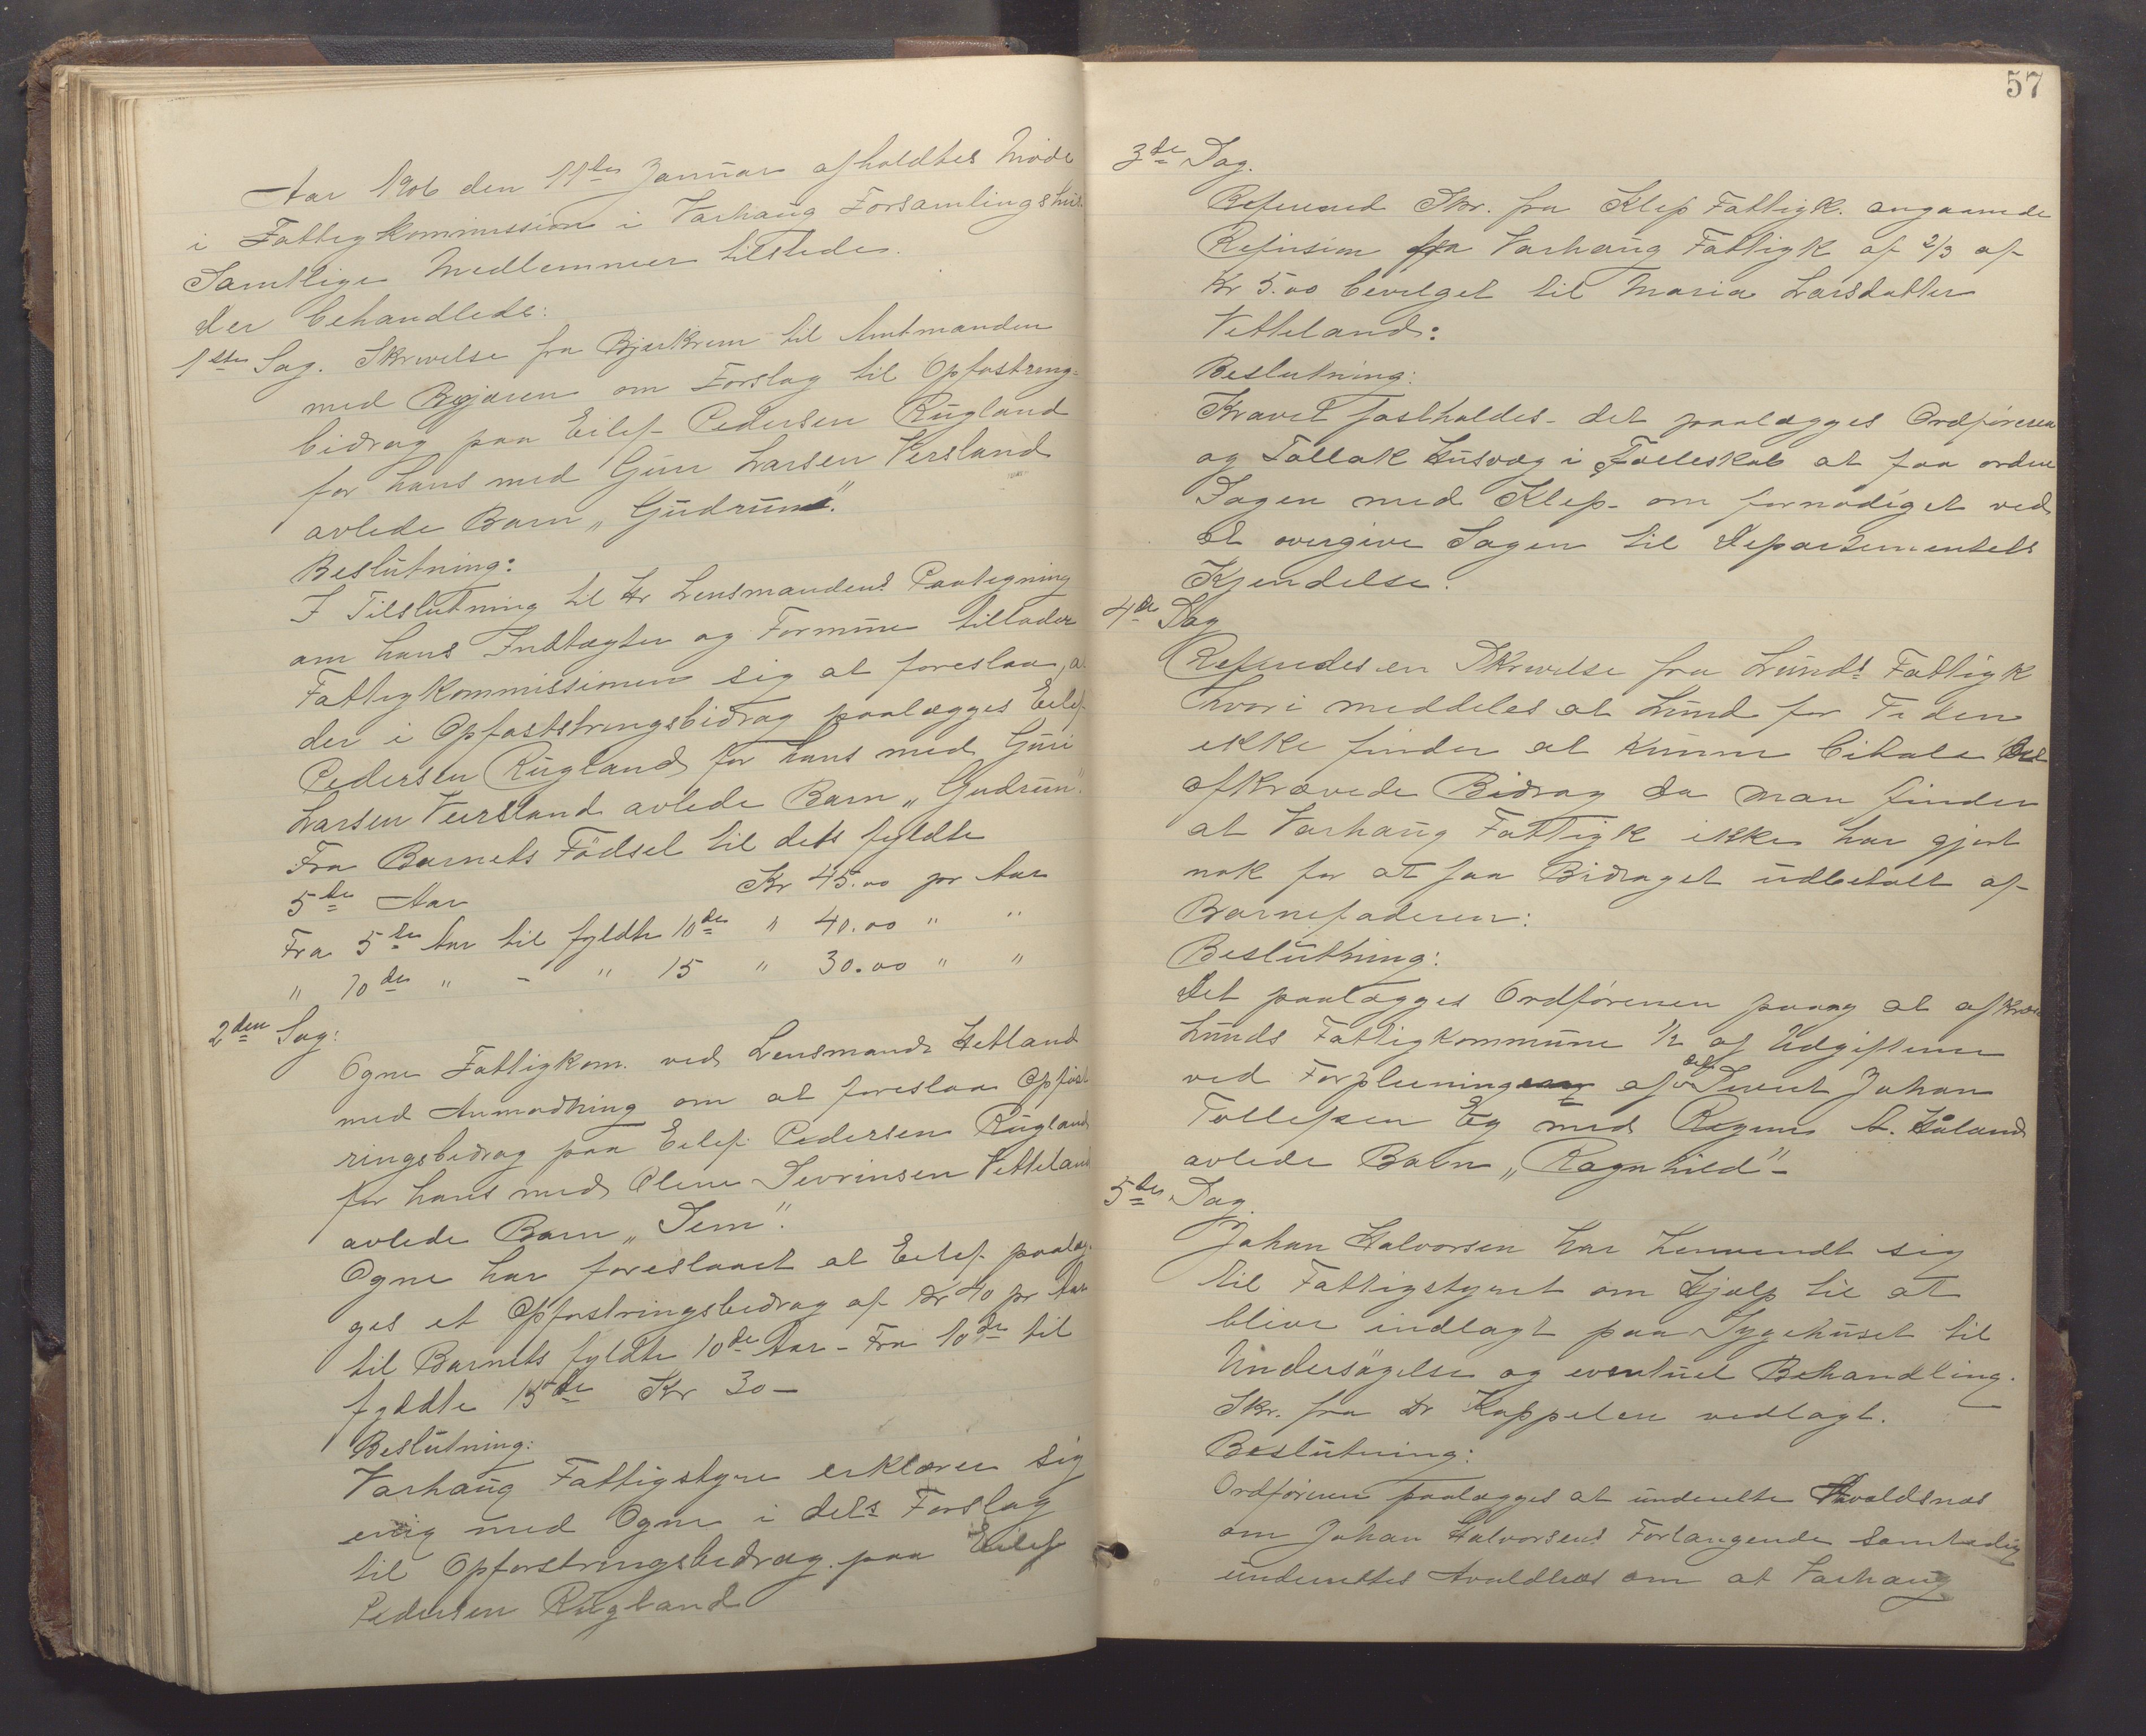 Aar 1906 den 11te Januar afholdtes Möde
i Fattigkommission i Varhaug Forsamlingshus.
Samtlige Medlemmer tilstede.
der behandlede:
1ste Sag. Skrivelse fra Bjerkrem til Amtmanden
med Begjæren om Forslag til Opfostrings-
bidrag paa Eilef Pedersen Rugland
for hans med Guri Larsen Versland
avlede Barn „Gudrun".
Beslutning:
I Tilslutning til Hr Lensmandens Paategning
om hans Indtægter og Formue tillader
Fattigkommissionen sig at foreslaa, at
der i Opfoststringsbidrag paalægges Eilef
Pedersen Rugland for hans med Guri
Larsen Veersland avlede Barn „Gudrun".
Fra Barnets Födsel til dets fyldte
5te Aar Kr 45.00 pr Aar
Fra 5te Aar til fyldte 10de " 40.00 " "
" 10de " - " 15 " 30.00 " "
2den Sag:
Ogne Fattigkom. ved Lensmand Hetland
med Anmodning om at foreslaa Opfost
ringsbidrag paa Eilef Pedersen Rugland
for hans med Olene Sevrinsen Vetteland
avlede Barn „Sem".
Ogne har foreslaaet at Eilef paalæg-
ges et Opfostringsbidrag af Kr 40 pr Aar
til Barnets fyldte 10de Aar - Fra 10de til
fyldte 15de Kr 30 -
Beslutning:
Varhaug Fattigstyre erklærer sig
enig med Ogne i dets Forslag
til Opforstringsbidrag paa Eilef
Pedersen Rugland
57
3de Sag.
Referered Skr. fra Klep Fattigk. angaaende
Refusion fra Varhaug Fattigk af 2/3 af
Kr 5.00 bevilget til Maria Larsdatter
Vetteland:
Beslutning:
Kravet fastholdes - det paalægges Ordföreren
og Tollak Husvæg i Fælleskab at faa ordne
Sagen med Klep - om fornødiget ved
at overgive Sagen til Departementets
Kjendelse.
4de Sag
Referedes en Skrivelse fra Lunds Fattigk
hvori meddeles at Lund for Tiden
ikke finder at kunne bitale det
afkrævede Bidrag da man finder
at Varhaug Fattigk ikke har gjort
nok for at faa Bidraget udbetalt af
Barnefaderen:
Beslutning:
Det paalægges Ordföreren paany at afkræve
Lunds Fattigkommune 1/2 af Udgifterne
ved Forpleining af det Sivert Johan
Tollefsen Eg med Regine A. Håland
avlede Barn „Ragnhild" -
5te Sag.
Johan Halvorsen har henvendt sig
til Fattigstyret om Hjælp til at
blive indlagt paa Sygehuset til
Undersögelse og eventuel Behandling.
Skr. fra Dr Kappelen vedlagt.
Beslutning:
Ordføreren paalægges at underette Avaldsnæs
om Johan Halvorsens Forlangende samtidig
underrettes Avaldsnæs om at Varhaug